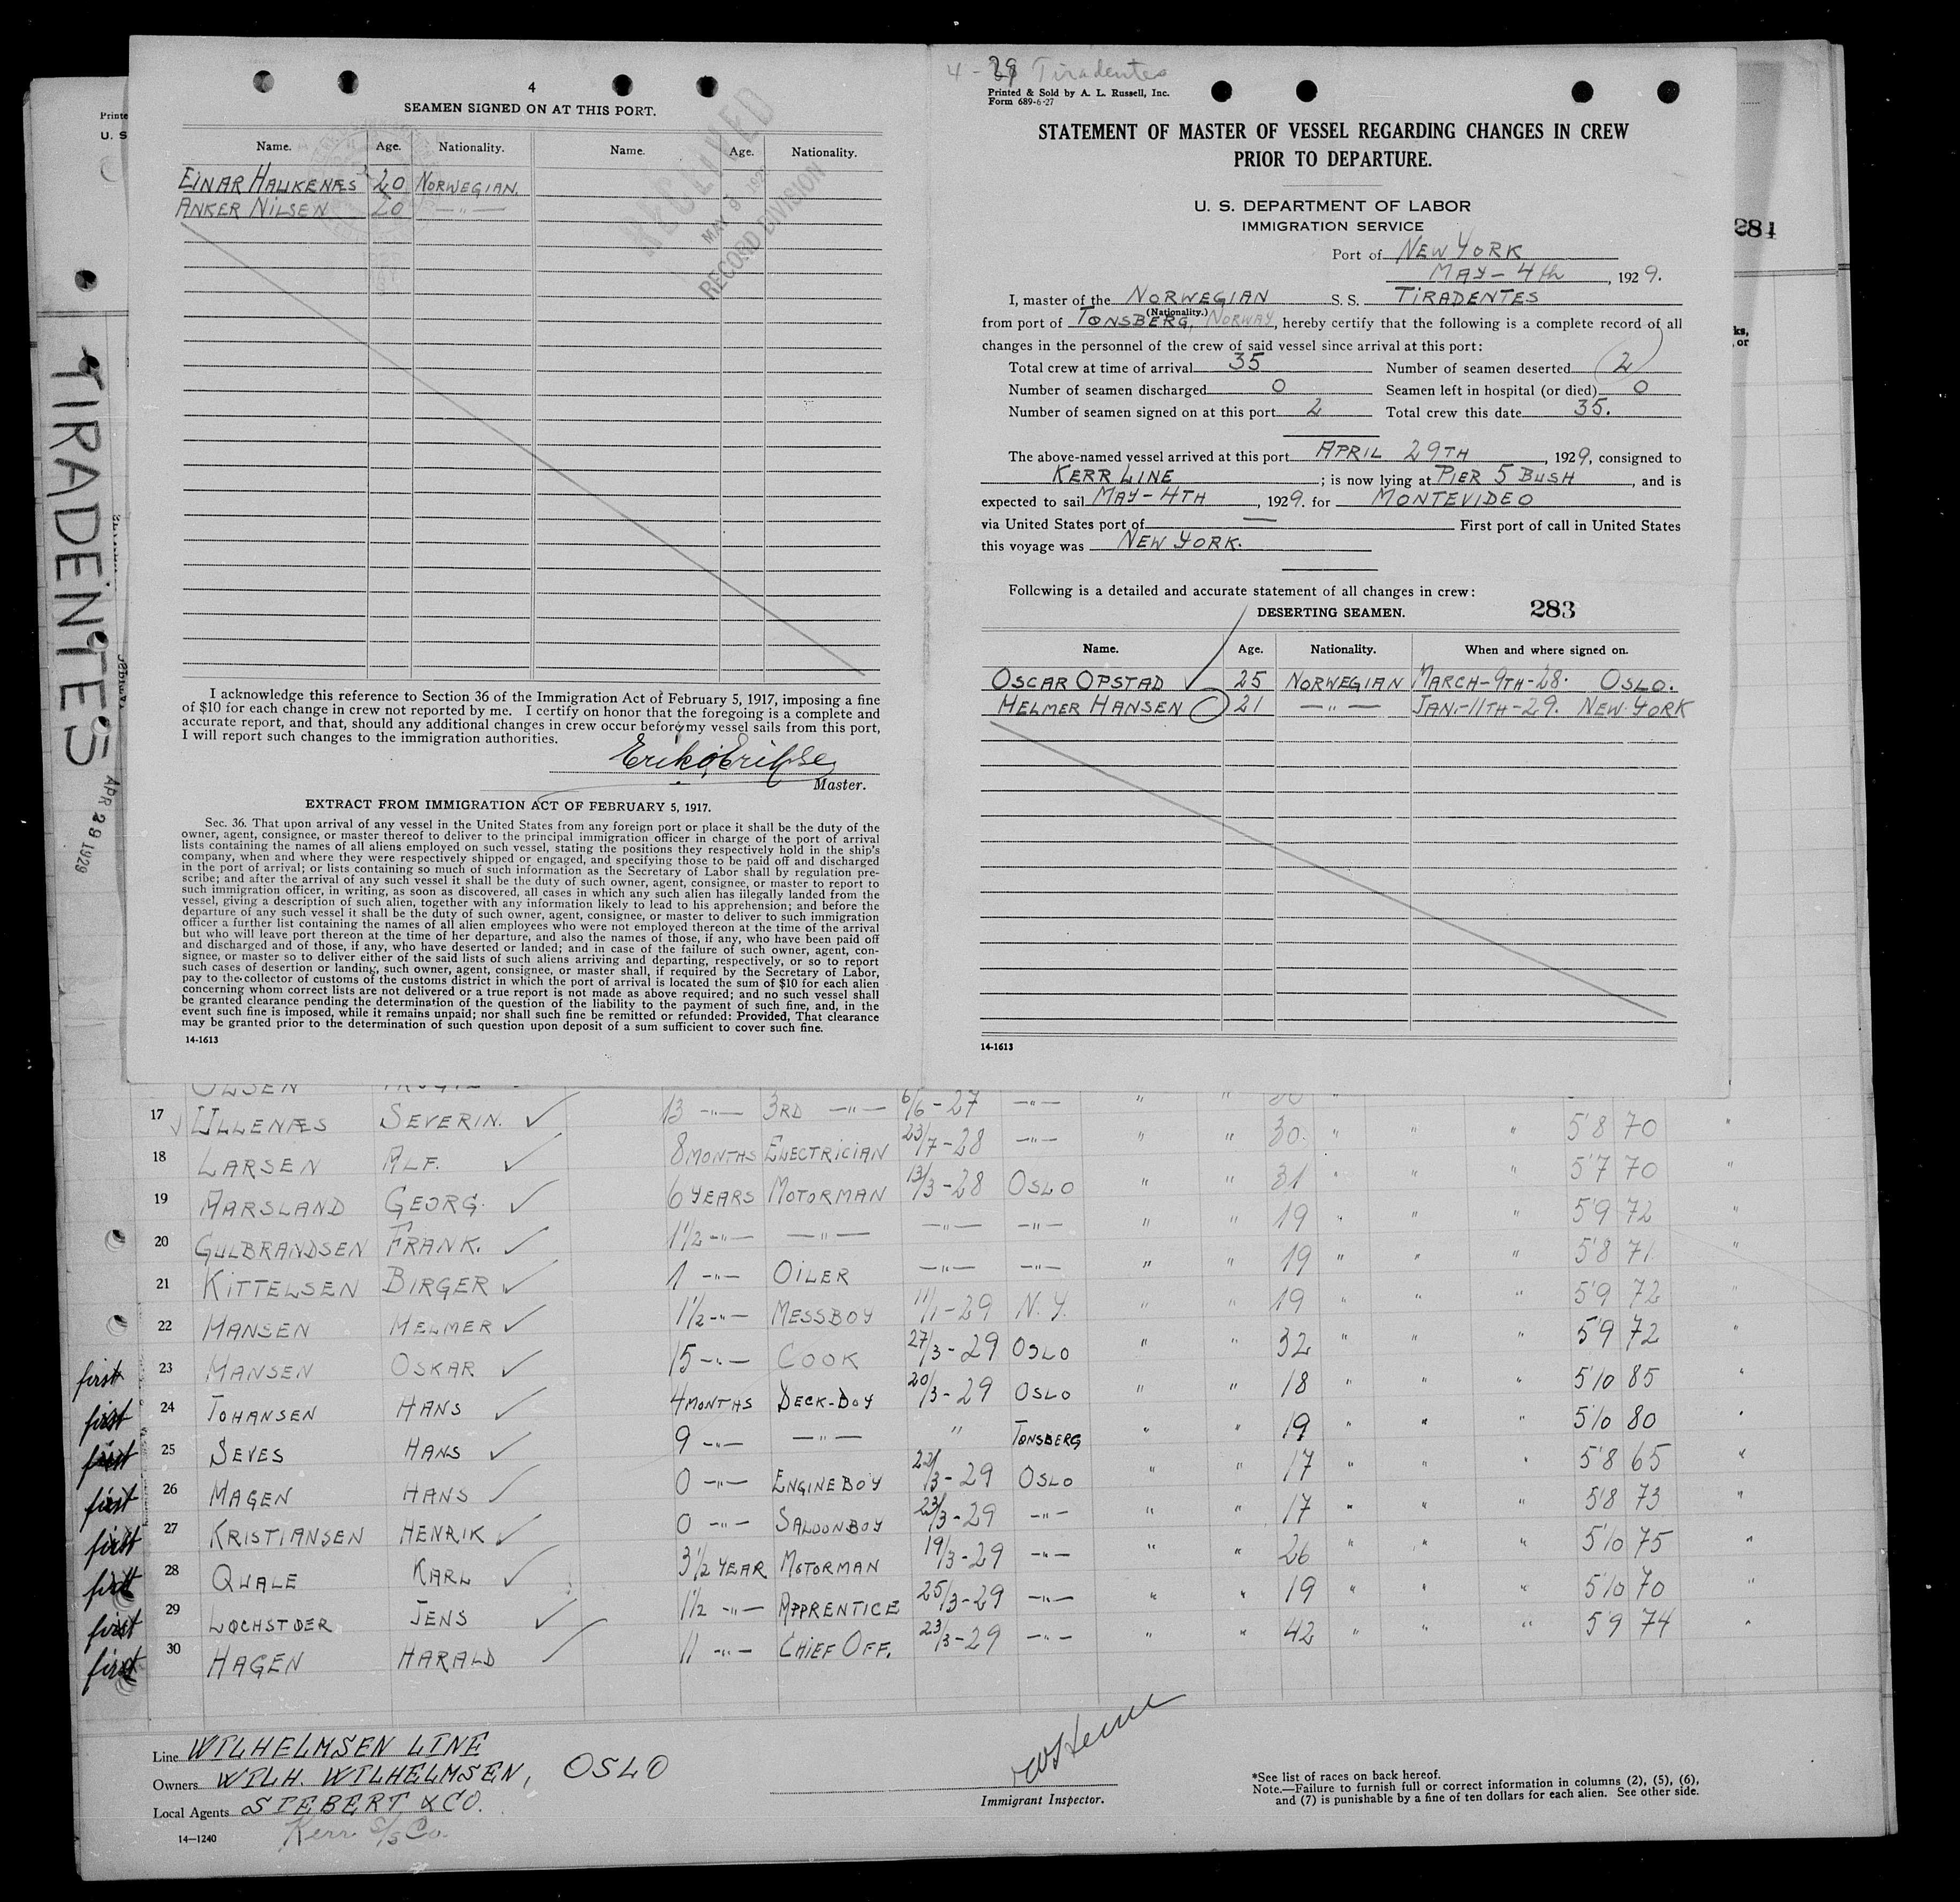 4
SEAMEN SIGNED ON AT THIS PORT.
Name. Age. Nationality. Name. Age. Nationality.
EINAR HAUKENÆS 20 NORWEGIAN.
ANKER NILSEN 20 —〃—
RECEIVED
MAY 9 192
RECORD DIVISION
I acknowledge this reference to Section 36 of the Immigration Act of February 5, 1917, imposing a fine
of $10 for each change in crew not reported by me. I certify on honor that the foregoing is a complete and
accurate report, and that, should any additional changes in crew occur before my vessel sails from this port,
I will report such changes to the immigration authorities.
Master.
EXTRACT FROM IMMIGRATION ACT OF FEBRUARY 5, 1917.
Sec. 36. That upon arrival of any vessel in the United States from any foreign port or place it shall be the duty of the
owner, agent, consignee, or master thereof to deliver to the principal immigration officer in charge of the port of arrival
lists containing the names of all aliens employed on such vessel, stating the positions they respectively hold in the ship's
company, when and where they were respectively shipped or engaged, and specifying those to be paid off and discharged
in the port of arrival; or lists containing so much of such information as the Secretary of Labor shall by regulation pre-
scribe; and after the arrival of any such vessel it shall be the duty of such owner, agent, consignee, or master to report to
such immigration officer, in writing, as soon as discovered, all cases in which any such alien has illegally landed from the
vessel, giving a description of such alien, together with any information likely to lead to his apprehension; and before the
departure of any such vessel it shall be the duty of such owner, agent, consignee, or master to deliver to such immigration
officer a further list containing the names of all alien employees who were not employed thereon at the time of the arrival
but who will leave port thereon at the time of her departure, and also the names of those, if any, who have been paid off
and discharged and of those, if any, who have deserted or landed; and in case of the failure of such owner, agent, con-
signee, or master so to deliver either of the said lists of such aliens arriving and departing, respectively, or so to report
such cases of desertion or landing, such owner, agent, consignee, or master shall, if required by the Secretary of Labor,
pay to the collector of customs of the customs district in which the port of arrival is located the sum of $10 for each alien
concerning whom correct lists are not delivered or a true report is not made as above required; and no such vessel shall
be granted clearance pending the determination of the question of the liability to the payment of such fine, and, in the
event such fine is imposed, while it remains unpaid; nor shall such fine be remitted or refunded: Provided, That clearance
may be granted prior to the determination of such question upon deposit of a sum sufficient to cover such fine.
14-1613
4 - 29 Tiradentes
Printed & Sold by A. L. Russell, Inc.
Form 689-6-27
STATEMENT OF MASTER OF VESSEL REGARDING CHANGES IN CREW
PRIOR TO DEPARTURE.
U. S. DEPARTMENT OF LABOR
IMMIGRATION SERVICE
Port of NEW YORK
MAY - 4th, 1929.
I, master of the NORWEGIAN S. S. TIRADENTES
(Nationality.)
from port of TØNSBERG, NORWAY, hereby certify that the following is a complete record of all
changes in the personnel of the crew of said vessel since arrival at this port:
Total crew at time of arrival 35 Number of seamen deserted 2
Number of seamen discharged 0 Seamen left in hospital (or died) 0
Number of seamen signed on at this port 2 Total crew this date 35.
The above-named vessel arrived at this port APRIL 29TH, 1929, consigned to
KERR LINE; is now lying at PIER 5 BUSH, and is
expected to sail MAY-4TH, 1929. for MONTEVIDEO
via United States port of — First port of call in United States
this voyage was NEW YORK.
Following is a detailed and accurate statement of all changes in crew:
DESERTING SEAMEN. 283
Name. Age. Nationality. When and where signed on.
OSCAR OPSTAD 25 NORWEGIAN MARCH-9TH-28. OSLO.
HELMER HANSEN 21 —〃— JAN.-11TH-29. NEW YORK
14-1613
Printe
U. S
TIRADENTES
APR 29 1929
281
ks,
or
OLSEN
17 ULLENÆS SEVERIN. ✓ 13 —〃— 3RD —〃— 6/6-27 —〃— 〃 〃 30 〃
18 LARSEN ALF. ✓ 8 MONTHS ELECTRICIAN 23/7-28 —〃— 〃 〃 30. 〃 〃 〃 5'8 70 〃
19 AARSLAND GEORG. ✓ 6 YEARS MOTORMAN 13/3-28 OSLO 〃 〃 31 〃 〃 〃 5'7 70 〃
20 GULBRANDSEN FRANK. ✓ 1½ —〃— —〃— —〃— —〃— 〃 〃 19 〃 〃 〃 5'9 72 〃
21 KITTELSEN BIRGER ✓ 1 —〃— OILER —〃— —〃— 〃 〃 19 〃 〃 〃 5'8 71 〃
22 HANSEN HELMER ✓ 1½ —〃— MESSBOY 11/1-29 N.Y. 〃 〃 19 〃 〃 〃 5'9 72 〃
first 23 HANSEN OSKAR ✓ 15 —〃— COOK 27/3-29 OSLO 〃 〃 32 〃 〃 〃 5'9 72 〃
first 24 JOHANSEN HANS ✓ 4 MONTHS DECK-BOY 20/3-29 OSLO 〃 〃 18 〃 〃 〃 5'10 85 〃
first 25 SEVES HANS ✓ 9 —〃— —〃— 〃 TØNSBERG 〃 〃 19 〃 〃 〃 5'10 80 〃
first 26 HAGEN HANS ✓ 0 —〃— ENGINEBOY 22/3-29 OSLO 〃 〃 17 〃 〃 〃 5'8 65 〃
first 27 KRISTIANSEN HENRIK ✓ 0 —〃— SALOONBOY 23/3-29 —〃— 〃 〃 17 〃 〃 〃 5'8 73 〃
first 28 QUALE KARL ✓ 3½ YEAR MOTORMAN 19/3-29 —〃— 〃 〃 26 〃 〃 〃 5'10 75 〃
first 29 LOCHSTØER JENS ✓ 1½ —〃— APPRENTICE 25/3-29 —〃— 〃 〃 19 〃 〃 〃 5'10 70 〃
first 30 HAGEN HARALD ✓ 11 —〃— CHIEF OFF. 23/3-29 —〃— 〃 〃 42 〃 〃 〃 5'9 74 〃
Line WILHELMSEN LINE
Owners WILH. WILHELMSEN, OSLO
Local Agents SIEBERT & CO.
Kerr S/S Co.
14—1240
Immigrant Inspector.
*See list of races on back hereof.
Note.—Failure to furnish full or correct information in columns (2), (5), (6),
and (7) is punishable by a fine of ten dollars for each alien. See other side.